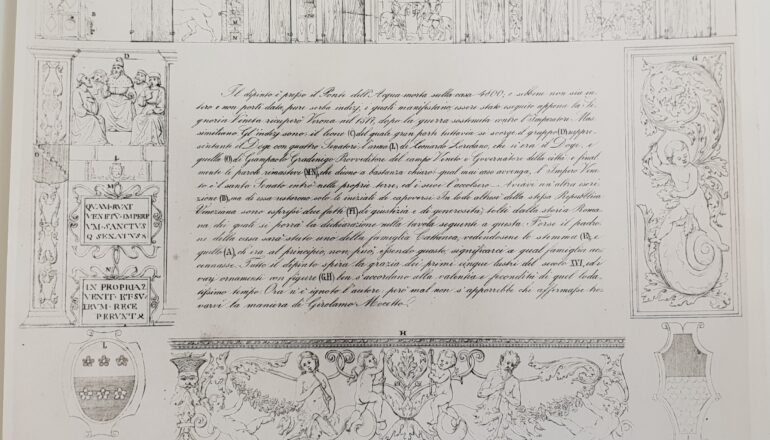 Il dipinto è presso il Ponte dell' Acqua morta sulla casa 4800; e sebbene non sia in-
tero e non porti data, pure serba indizj, i quali manifestano essere stato eseguito appena la Si-
gnoria Veneta recuperò Verona nel 1517, dopo la guerra sostenuta contro l'Imperatore Mas-
similiano. Gl' indizj sono: il leone (C) del quale gran parte tuttavia si scorge: il gruppo (D) rappre-
sentante il Doge con quattro Senatori: l'arma (L) di Leonardo Loredano, che n'era il Doge, e
quella (I) di Giampaolo Gradenigo Provveditore del campo Veneto e Governatore della città: e final-
mente le parole rimastevi (M.N), che dicono a bastanza chiaro: qual mai caso avvenga, l'Impero Vene-
to e il santo Senato entrò nelle proprie terre, ed i suoi l'accolsero. Aveavi un'altra iscri-
zione (B), ma di essa restarono solo le iniziali di capoversi. In lode altresì della stessa Repubblica
Veneziana sono espressi due fatti (F.E) di giustizia e di generosità, tolti dalla storia Roma-
na dei quali si porrà la dichiarazione nella tavola seguente a questa. Forse il padro-
ne della casa sarà stato uno della famiglia Cattanea, vedendosene lo stemma (K); e
quello (A), ch'era al principio, non può, essendo guasto, significarci a qual famiglia ac-
cennasse. Tutto il dipinto spira la grazia dei primi cinque lustri del secolo XVI, ed i
varj ornamenti con figure (G.H) ben s'accordano alla valentia e fecondità di quel loda-
tissimo tempo. Ora n'è ignoto l'autore, però mal non s'apporrebbe chi affermasse tro-
varvi la maniera di Girolamo Mocetto.
D
G
M
QVAM RVAT
VENETV IMPERI
VM SANCTVS
Q SENATVS
N
IN PROPRIAS
VENIT ET SV
I RVM RECE
PERVNT
L
H